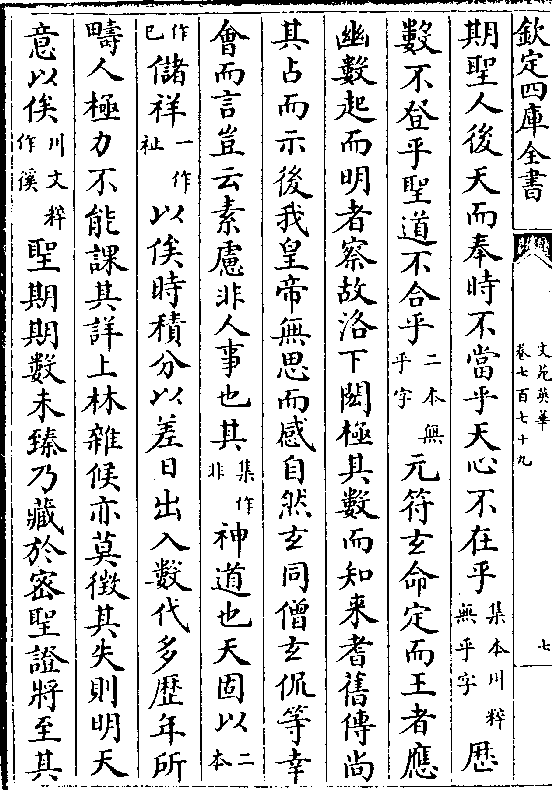 欽定四庫全書
文苑英華
卷七百七十九
七
期聖人後天而奉時不當乎天心不在乎集本川粹無乎字厯
數不登乎聖道不合乎二本無乎字元符𤣥命定而王者應
幽數起而明者察故洛下閎極其數而知来耆舊傳尚
其占而示後我皇帝無思而感自然𤣥同僧𤣥侃等幸
會而言豈云素慮非人事也其集作非神道也天固以二本
作已儲祥一作祉以俟時積分以差日出入數代多歴年所
疇人極力不能課其詳上林雜候亦莫徴其失則明天
意以俟川文粹作徯聖期期數未臻乃藏於宻聖證將至其